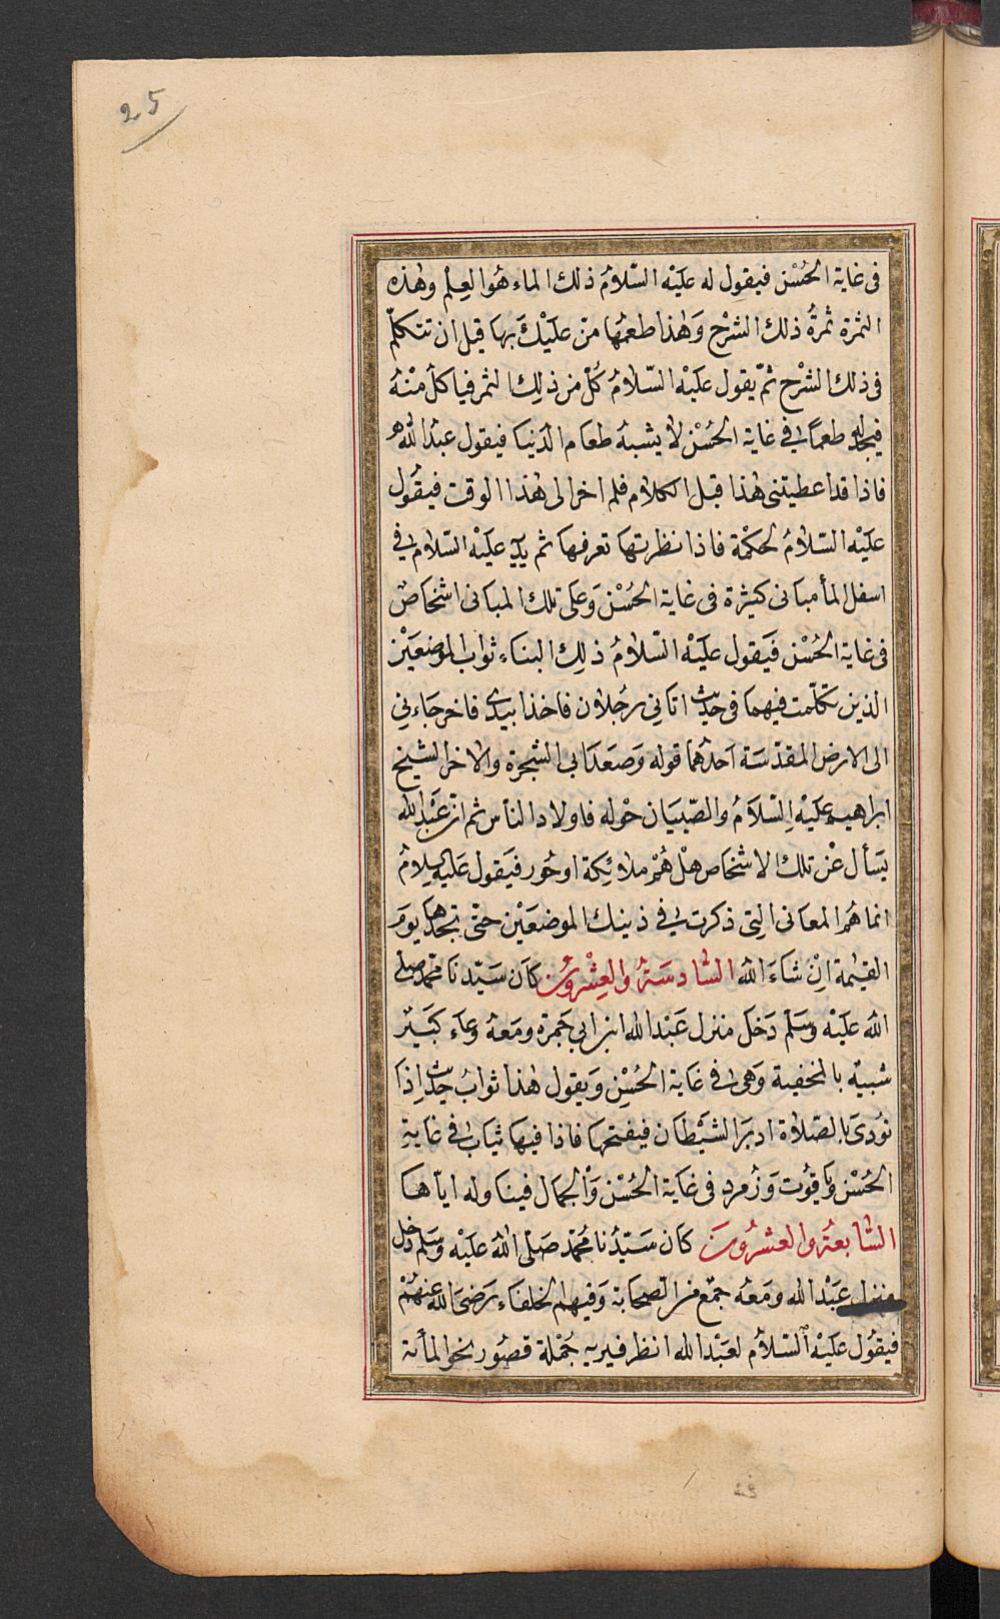 25
فى غاية الحُسْن فيقول له عليْه السّلامُ ذلك الماء هُوا لعِلْم وهٰذه
الثمرة ثمرةُ ذلك الشرْح وَهٰذا طعمُها منّ عليْكَ بها قبل ان تتكلّم
فى ذلك الشرْح ثمّ يقول عليْه السّلامُ كُلْ من ذلِك الثمر فياكلُ منْهُ
فيجد له طعمًا فى غاية الحُسْن لا يشبهُ طعام الدّنيا فيقول عبدُ الله
فاذا قد اعطيتنى هٰذا قبل الكلام فلم اخر الى هٰذا الوقت فيقُول
عليْه السّلامُ لحكمْة فاذا نظرتها تعرفها ثم يريه عليْه السّلام فى
اسفل الماء مبانى كثيرة فى غاية الحُسْن وَعلى تلك المبانى اشخاصٌ
فى غاية الحُسْن فيَقول عليْه السّلامُ ذلِك البناء ثواب الموضعَيْن
الذين تكلّمت فيهما فى حديث اتانِي رجُلان فاخذا بيدى فاخرجَانِي
الى الارض المقدّسَة احَدُهما قوله وَصَعَدَا بى الشجرة والاخر الشيخ
ابراهيم عليْه السّلاَمُ والصّبيَان حوْله فاولاد النّاس ثم انّ عَبْد الله
يَسأل عْن تلك الاشخاص هلْ هُمْ ملائِكة او حُور فيَقول عَليْه السّلامُ
انما هُم المعانى التِى ذكرت فى ذينك الموضعَيْن حتّى تجدها يومَ
القيٰمة اِنْ شَاءَ اللّه السَّادسَةُ والعِشْرُونَ كاَن سَيّدنَا محَمّد صلى
اللّه عَليْه وسَلم دَخَل منزل عَبْد الله ابن ابِى جَمرة ومَعَهُ وعَاء كَبيَر
شبيه بالمخفية وَهىَ فى غاية الحُسْن وَيقول هٰذا ثوابُ حديث اِذَا
نوُدىَ بالصّلاة ادبَرَ الشيْطَان فيفتحهَا فاذا فيهَا ثيَاب فى غاية
الحُسْن وَياقُوت وَزُمرد فى غاية الحُسْن وَالجَمال فيناوله ايّاهَا
السَّابعَةُ والعشْرُونَ كَان سَيّدُنا مُحَمّد صَلّى اللّه عَليْه وَسَلم دخل
منزل عَبْد الله ومَعَه جمْع من الصّحَابة وَفيهم الخلفَاء رَضىَ اللّه عنهُمْ
فيقُول عليْه السّلاَم لعَبْد الله انظر فيريه جُمْلة قصُور نحو المأئة